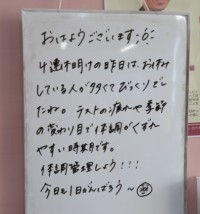 おはようございます
4連休明けの昨日は、お休み
している人が多くてびっくりでし
たね。テストの疲れや季節
の変わり目で体調がくずれ
やすい時期です。
体調管理しよう!!!
今日も1日がんばろう〜